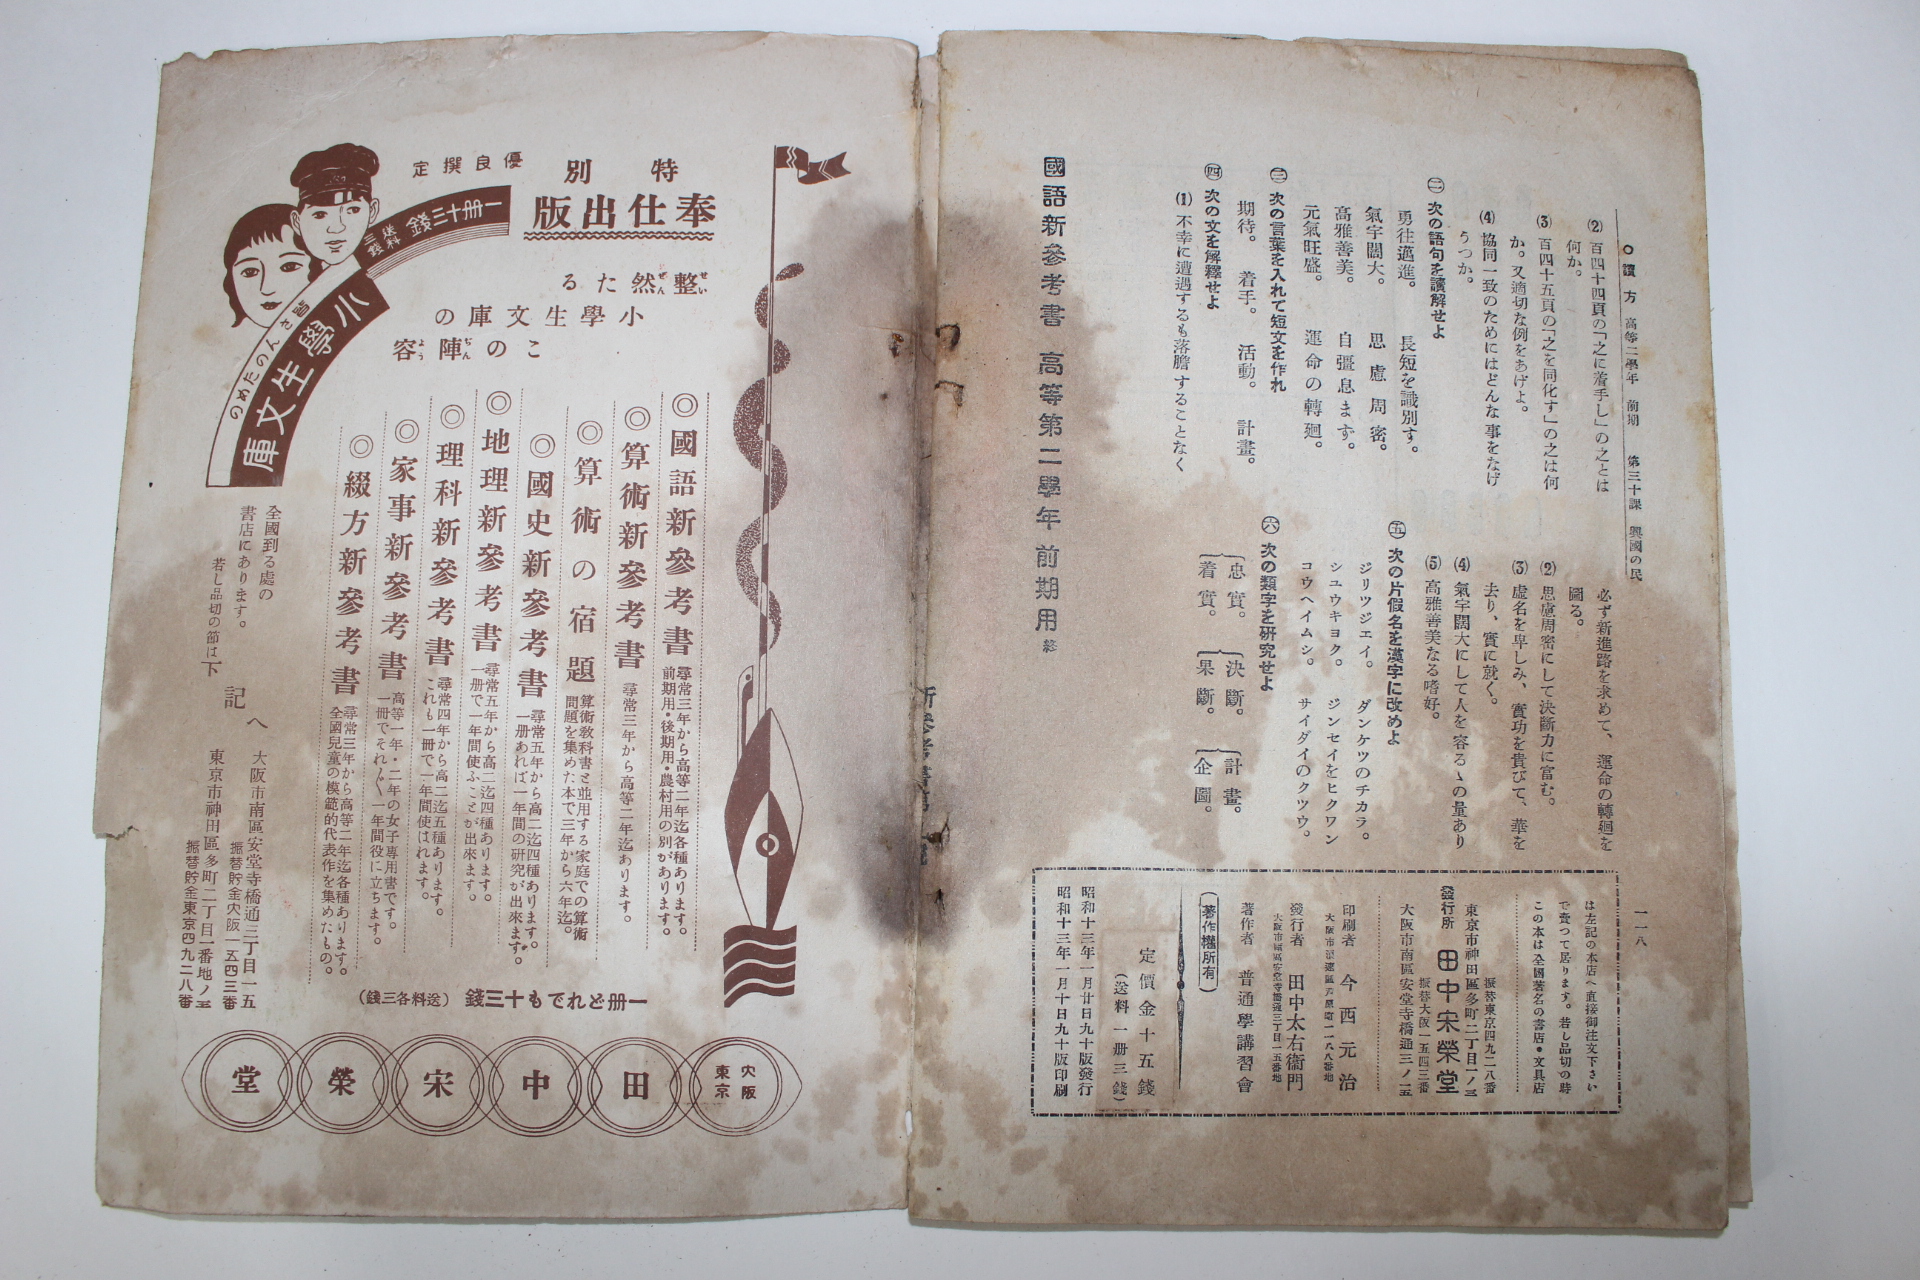 ○讀方 高等二學年 前期 第三十課 興國の民
一一八
(2) 百四十四頁の「之に着手し」の之とは
何か。
(3) 百四十五頁の「之を同化す」の之は何
か。又適切な例をあげよ。
(4) 協同一致のためにはどんな事をなげ
うつか。
㊁ 次の語句を讀解せよ
勇往邁進。 長短を識別す。
氣宇闊大。 思慮周密。
高雅善美。 自彊息まず。
元氣旺盛。 運命の轉廻。
㊂ 次の言葉を入れて短文を作れ
期待。 着手。 活動。 計畫。
㊃ 次の文を解釋せよ
(1) 不幸に遭遇するも落膽することなく
必ず新進路を求めて、運命の轉廻を
圖る。
(2) 思慮周密にして決斷力に富む。
(3) 虛名を卑しみ、實功を貴びて、華を
去り、實に就く。
(4) 氣宇闊大にして人を容るゝの量あり
(5) 高雅善美なる嗜好。
㊄ 次の片假名を漢字に改めよ
ジリツジエイ。 ダンケツのチカラ。
シユウキヨク。 ジンセイをヒクワン
コウヘイムシ。 サイダイのクツウ。
㊅ 次の類字を研究せよ
忠實。 決斷。 計畫。
着實。 果斷。 企圖。
國語新參考書 高等第二學年 前期用 終
は左記の本店へ直接御注文下さい
で賣つて居ります。若し品切の時
この本は全國著名の書店・文具店
振替東京四九二八番
東京市神田區多町二丁目一ノ三
發行所 田中宋榮堂
振替大阪一五四三番
大阪市南區安堂寺橋通三ノ一五
印刷者 今西元治
發行者 田中太右衞門
大阪市南區安堂寺橋通三丁目一五番地
著作者 普通學講習會
(著作權所有)
定價金十五錢
(送料一册三錢)
昭和十三年一月廿日九十版發行
昭和十三年一月十日九十版印刷
優良撰定
特別
奉仕出版
一册十三錢
送料三錢
整然たる
せいぜん
小學生文庫の
この陣容
ぢんよう
小學生文庫
皆さんのための
◎國語新參考書 尋常三年から高等二年迄各種あります。
前期用・後期用・農村用の別があります。
◎算術新參考書 尋常三年から高等二年迄あります。
◎算術の宿題 算術敎科書と並用する家庭での算術
問題を集めた本で三年から六年迄。
◎國史新參考書 尋常五年から高二迄四種あります。
一册あれば一年間の研究が出來ます。
◎地理新參考書 尋常五年から高二迄四種あります。
一册で一年間使ふことが出來ます。
◎理科新參考書 尋常四年から高二迄五種あります。
これも一冊で一年間使はれます。
◎家事新參考書 高等一年・二年の女子專用書です。
一冊でそれ〲一年間役に立ちます。
◎綴方新參考書 尋常三年から高等二年迄各種あります。
全國兒童の模範的代表作を集めたもの。
一册どれでも十三錢 (送料各三錢)
全國到る處の
書店にあります。
若し品切の節は下
記へ
大阪市南區安堂寺橋通三丁目一五
振替貯金大阪一五四三番
東京市神田區多町二丁目一番地ノ三
振替貯金東京四九二八番
大阪
東京
田中宋榮堂